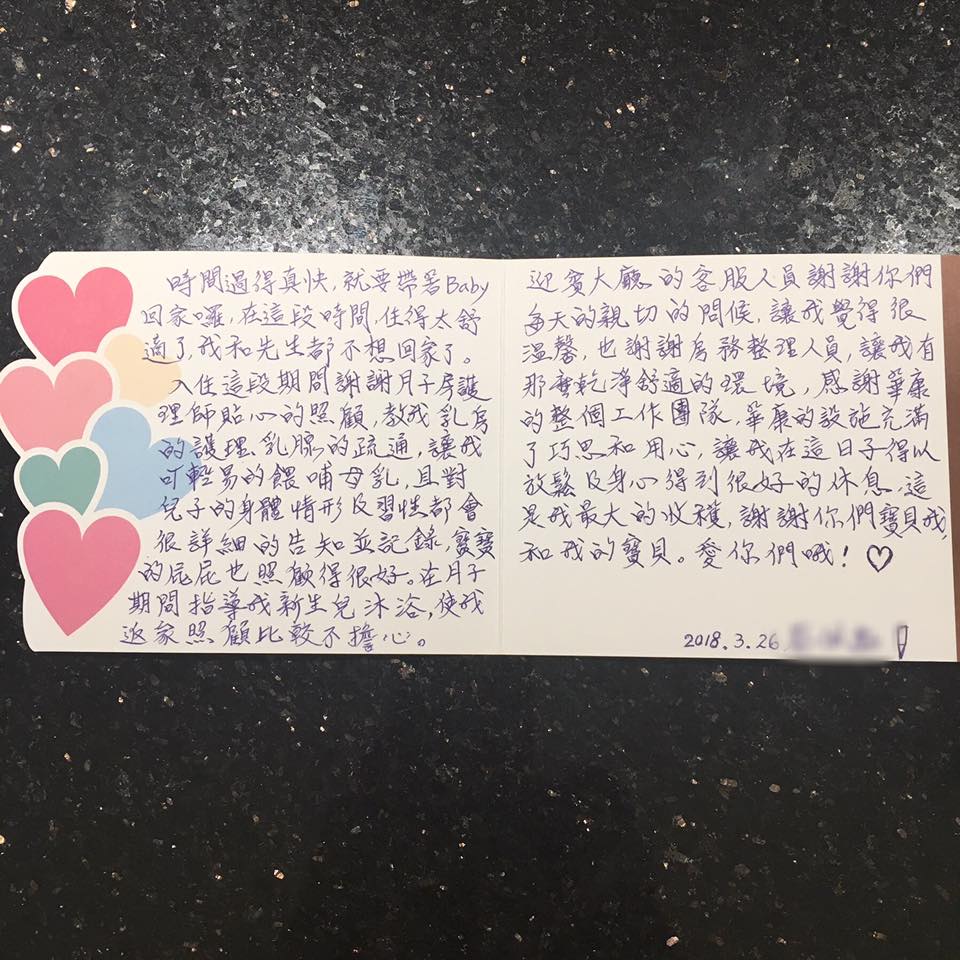 時間過得真快,就要帶著Baby
回家囉,在這段時間,住得太舒
適了,我和先生都不想回家了。
入住這段期間謝謝月子房護
理師貼心的照顧,教我乳房
的護理、乳腺的疏通,讓我
可輕易的餵哺母乳,且對
兒子的身體情形及習性都會
很詳細的告知並記錄,寶寶
的屁屁也照顧得很好。在月子
期間指導我新生兒沐浴,使我
返家照顧比較不擔心。
迎賓大廳的客服人員謝謝你們
每天的親切的問候,讓我覺得很
溫馨,也謝謝房務整理人員,讓我有
那麼乾淨舒適的環境,感謝華康
的整個工作團隊,華康的設施充滿
了巧思和用心,讓我在這日子得以
放鬆及身心得到很好的休息,這
是我最大的收穫,謝謝你們寶貝我,
和我的寶貝。愛你們哦!♡
2018.3.26